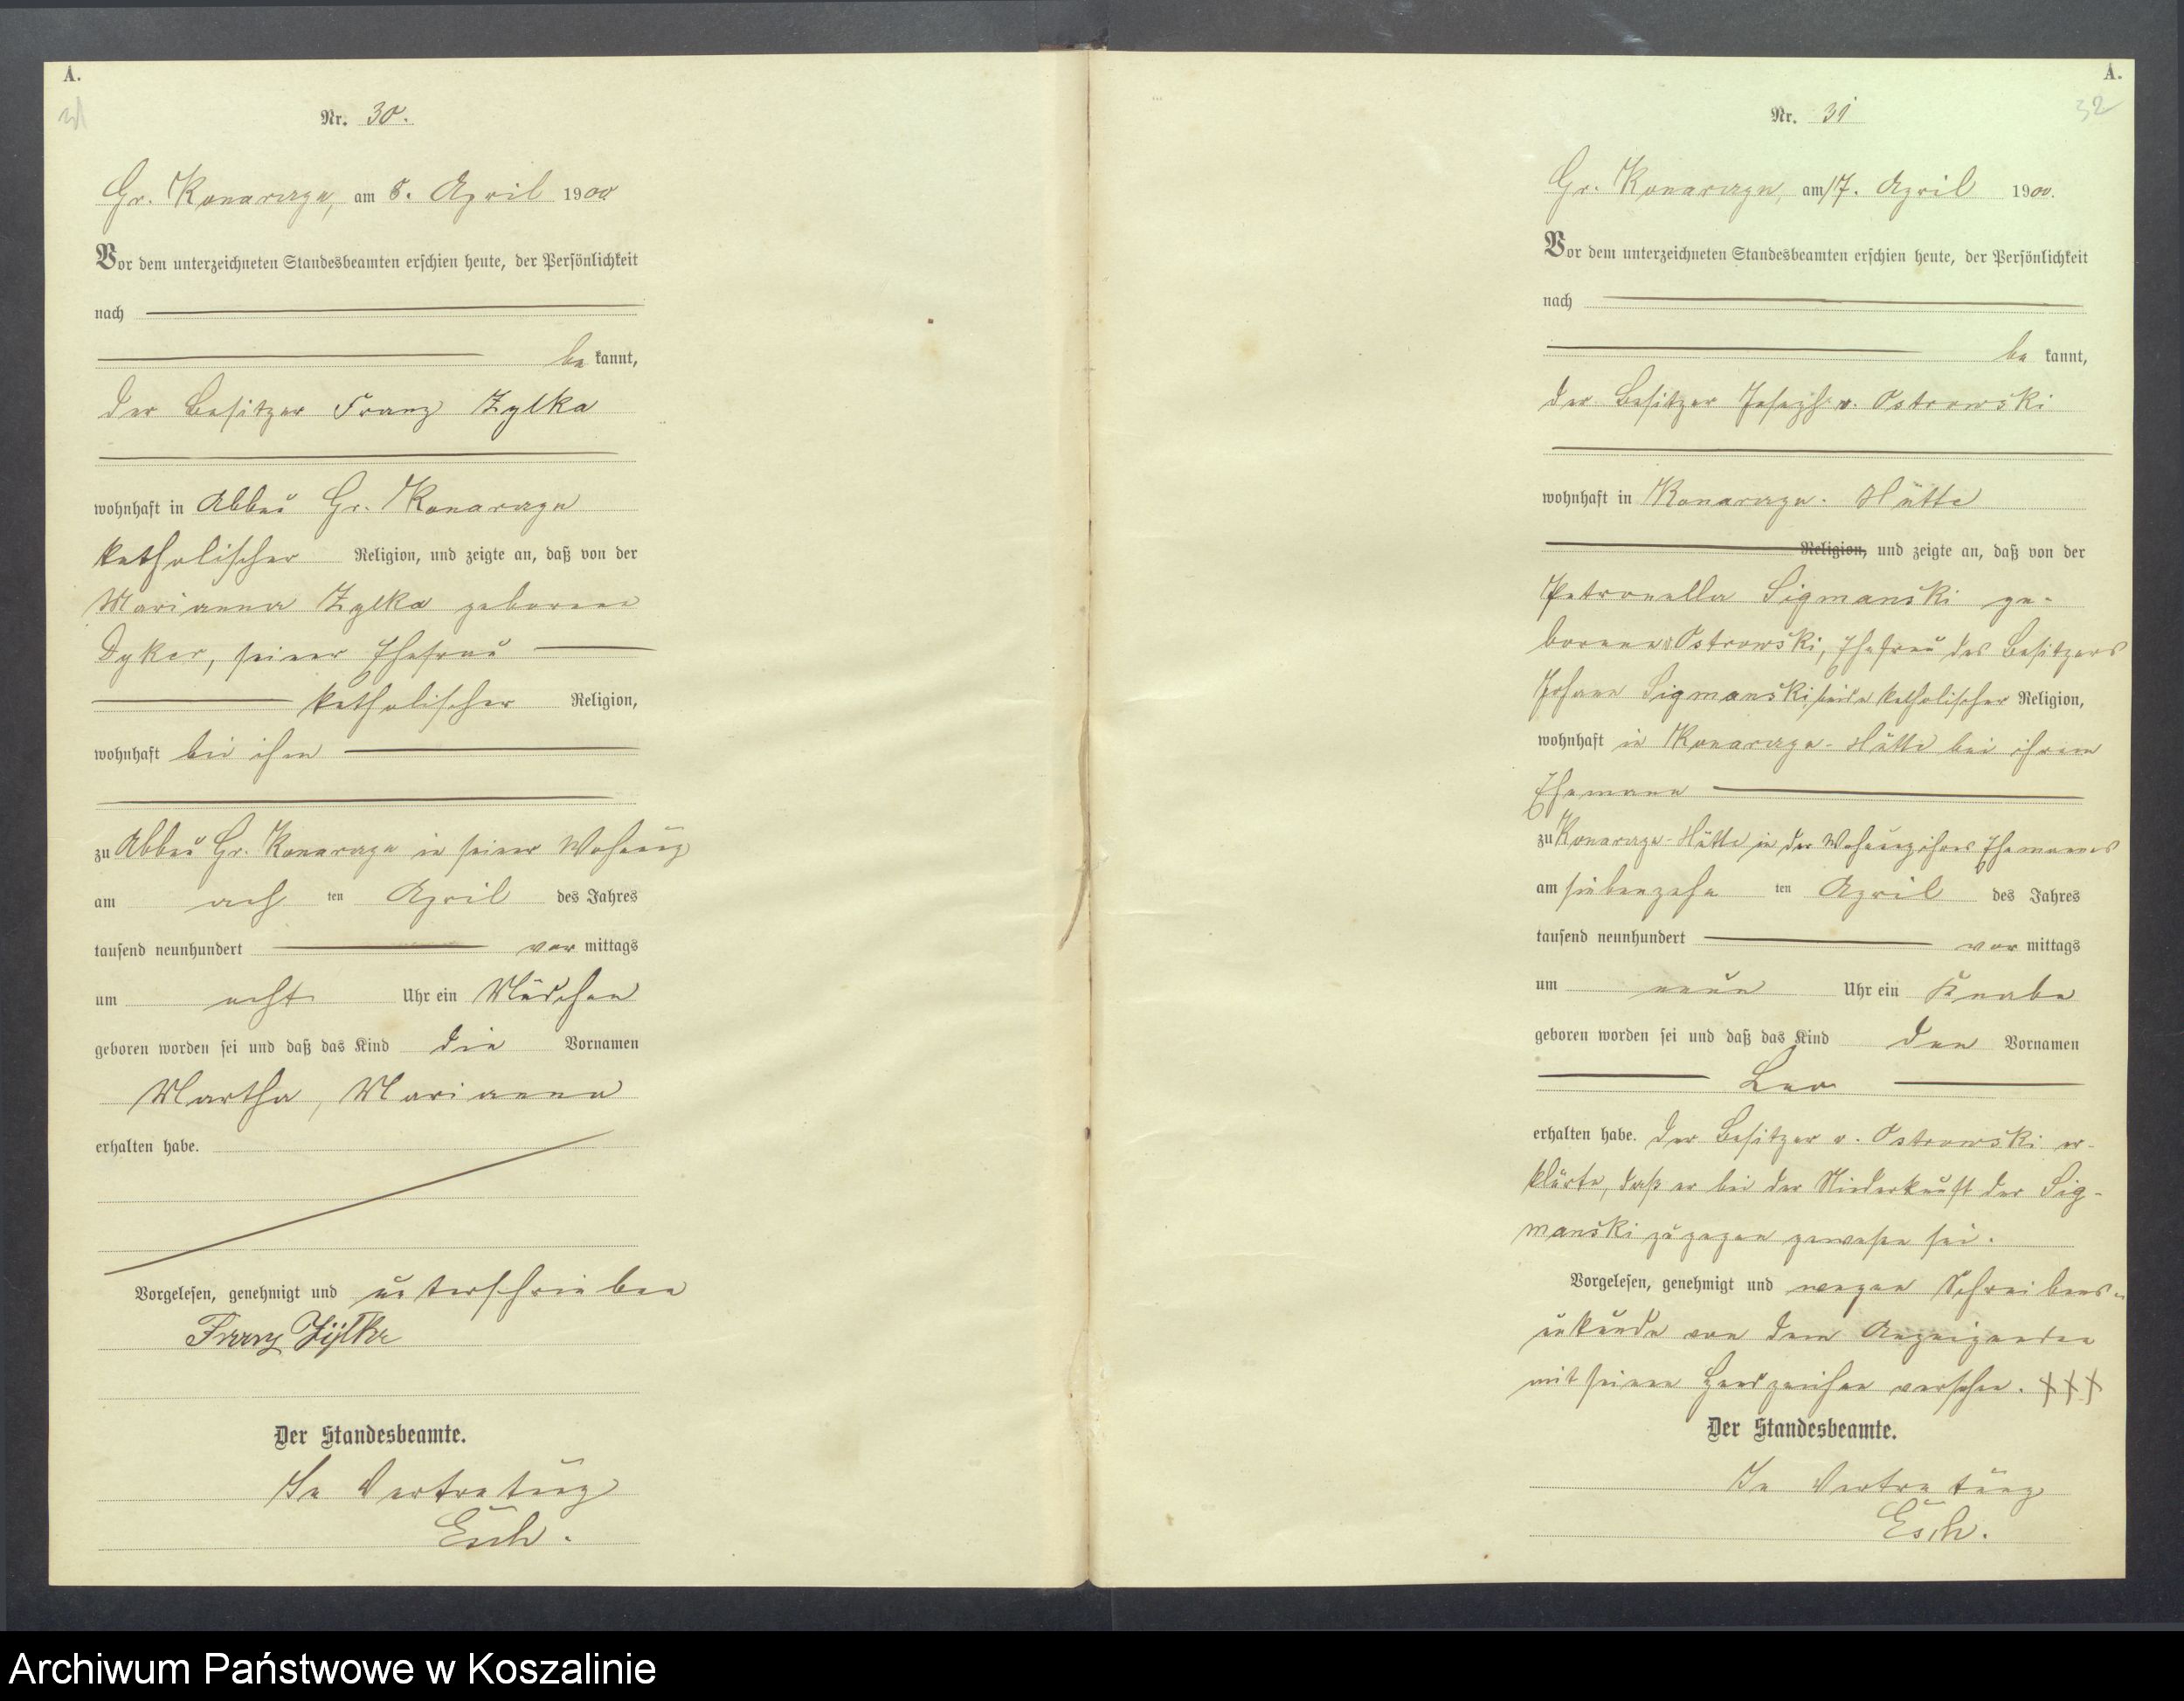 A.
31
Nr. 30.
Gr. Konarczyn, am 8. April 1900
Vor dem unterzeichneten Standesbeamten erschien heute, der Persönlichkeit
nach
be kannt,
der Besitzer Franz Zylka
wohnhaft in Abbau Gr. Konarczyn
katholischer Religion, und zeigte an, daß von der
Marianna Zylka geborene
Dyker, seiner Ehefrau
katholischer Religion,
wohnhaft bei ihm
zu Abbau Gr. Konarczyn in seiner Wohnung
am ach ten April des Jahres
tausend neunhundert vor mittags
um acht Uhr ein Mädchen
geboren worden sei und daß das Kind die Vornamen
Martha, Marianna
erhalten habe.
Vorgelesen, genehmigt und unterschrieben
Franz Zylka
Der Standesbeamte.
In Vertretung
Esch.
A.
32
Nr. 31
Gr. Konarczyn, am 17. April 1900.
Vor dem unterzeichneten Standesbeamten erschien heute, der Persönlichkeit
nach
be kannt,
der Besitzer Joseph v. Ostrowski
wohnhaft in Konarczyn-Hütte
Religion, und zeigte an, daß von der
Petronella Sigmanski ge-
borene v Ostrowski, Ehefrau des Besitzers
Johann Sigmanski, beide katholischer Religion,
wohnhaft in Konarczyn-Hütte bei ihrem
Ehemann
zu Konarczyn-Hütte in der Wohnung ihres Ehemannes
am siebenzehn ten April des Jahres
tausend neunhundert vor mittags
um neun Uhr ein Knabe
geboren worden sei und daß das Kind den Vornamen
Leo
erhalten habe. Der Besitzer v. Ostrowski er-
klärte, daß er bei der Niederkunft der Sig-
manski zugegen gewesen sei.
Vorgelesen, genehmigt und wegen Schreibens-
unkunde von dem Anzeigenden
mit seinen Handzeichen versehen. +++
Der Standesbeamte.
In Vertretung
Esch.
Archiwum Państwowe w Koszalinie